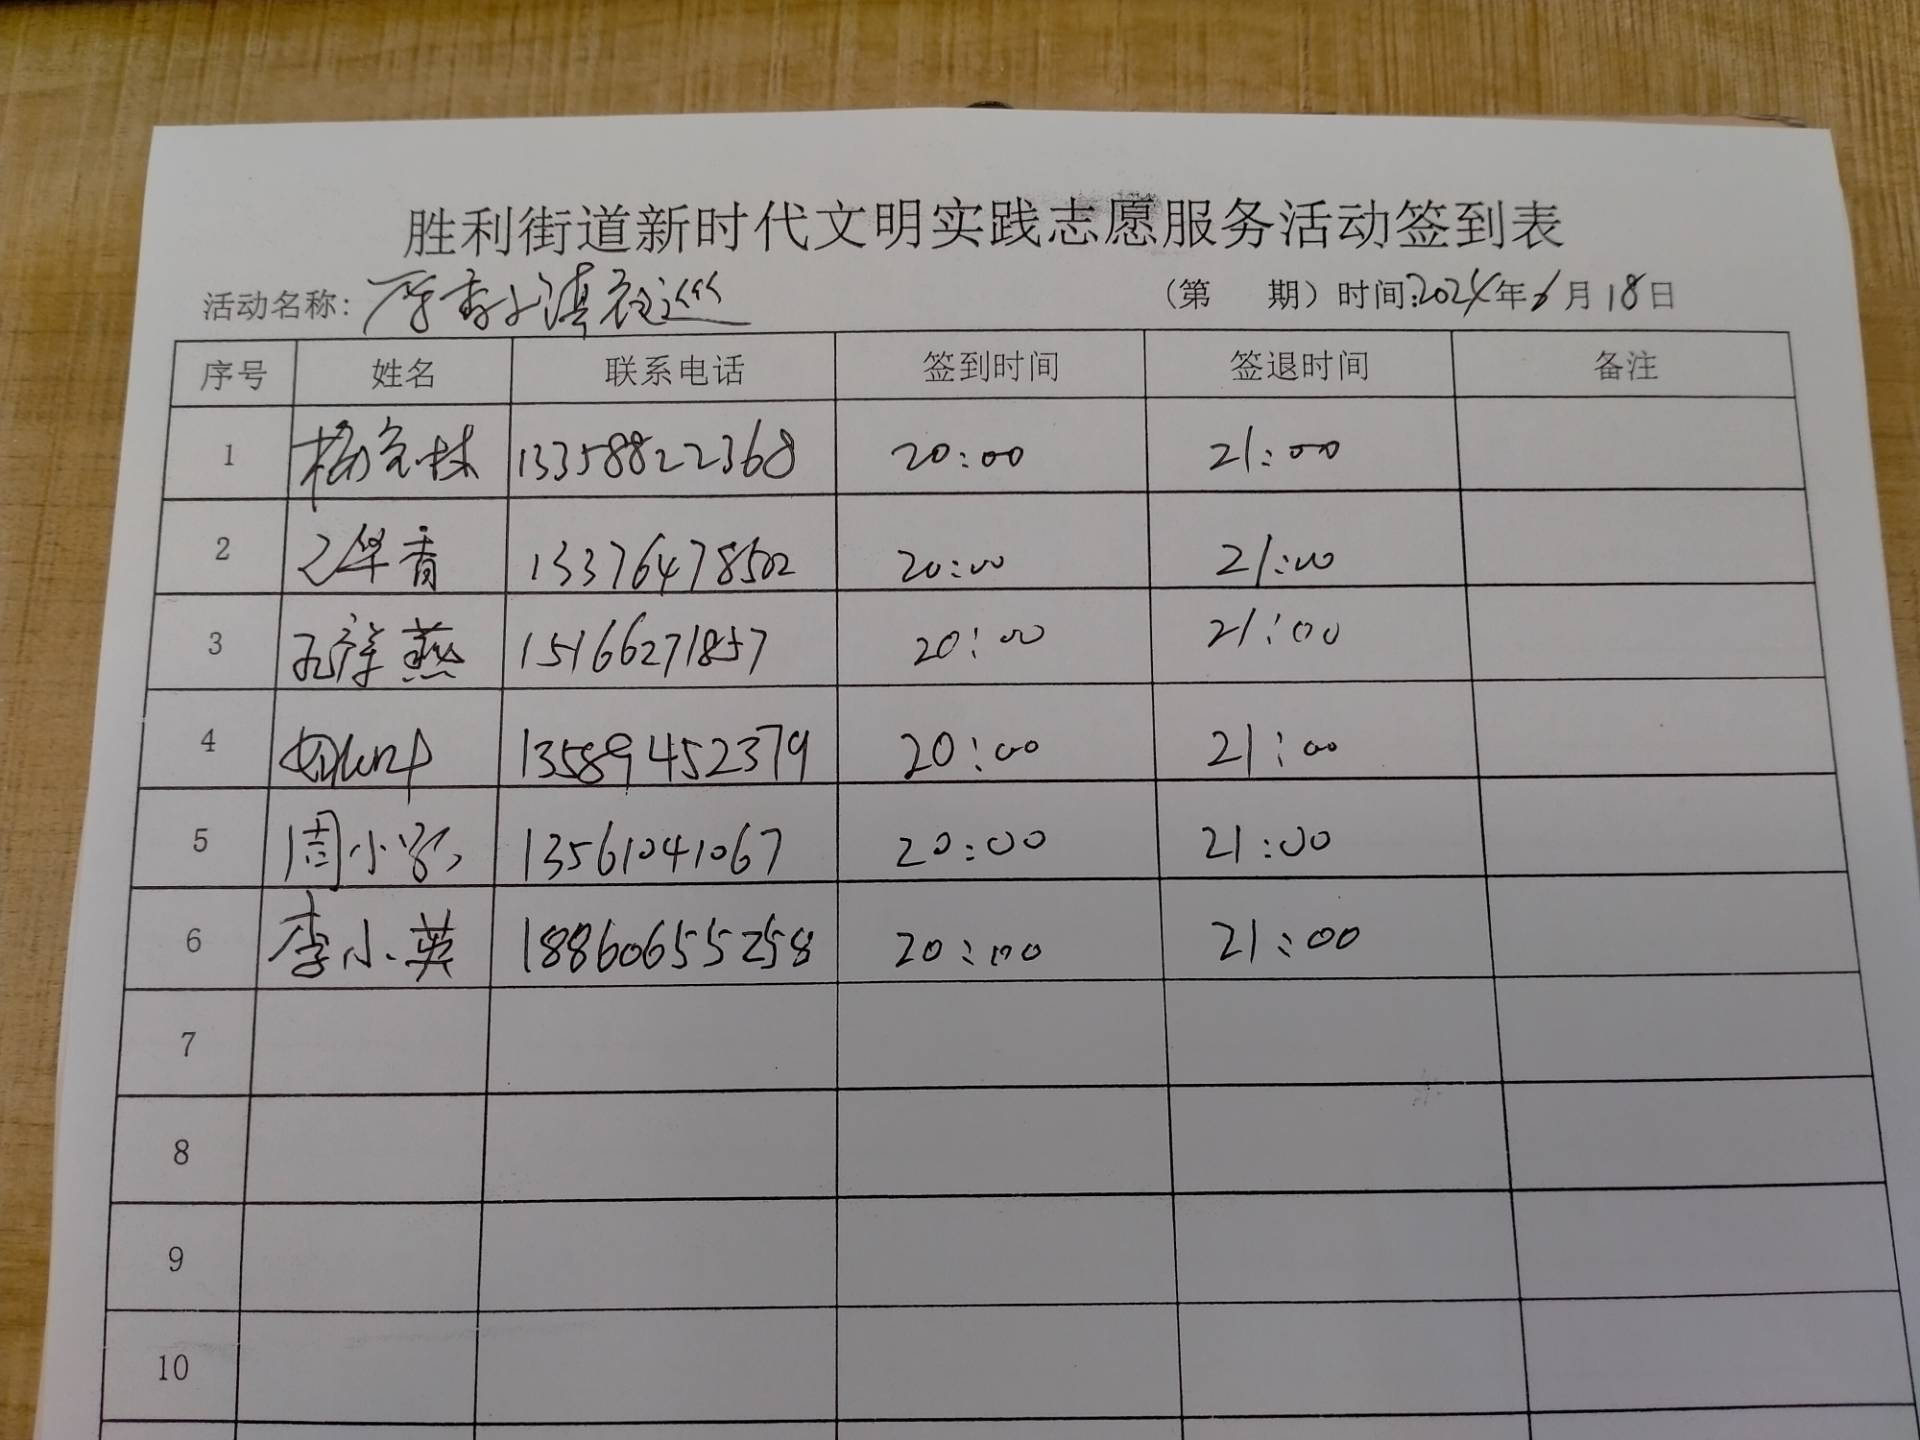 胜利街道新时代文明实践志愿服务活动签到表
活动名称: （第 期）时间:2024年6月18日
序号 姓名 联系电话 签到时间 签退时间 备注
1 13358822368 20:00 21:00
2 华香 13376478502 20:00 21:00
3 孔祥燕 15166271857 20:00 21:00
4 13589452379 20:00 21:00
5 周小 13561041067 20:00 21:00
6 李小英 18860655258 20:00 21:00
7
8
9
10